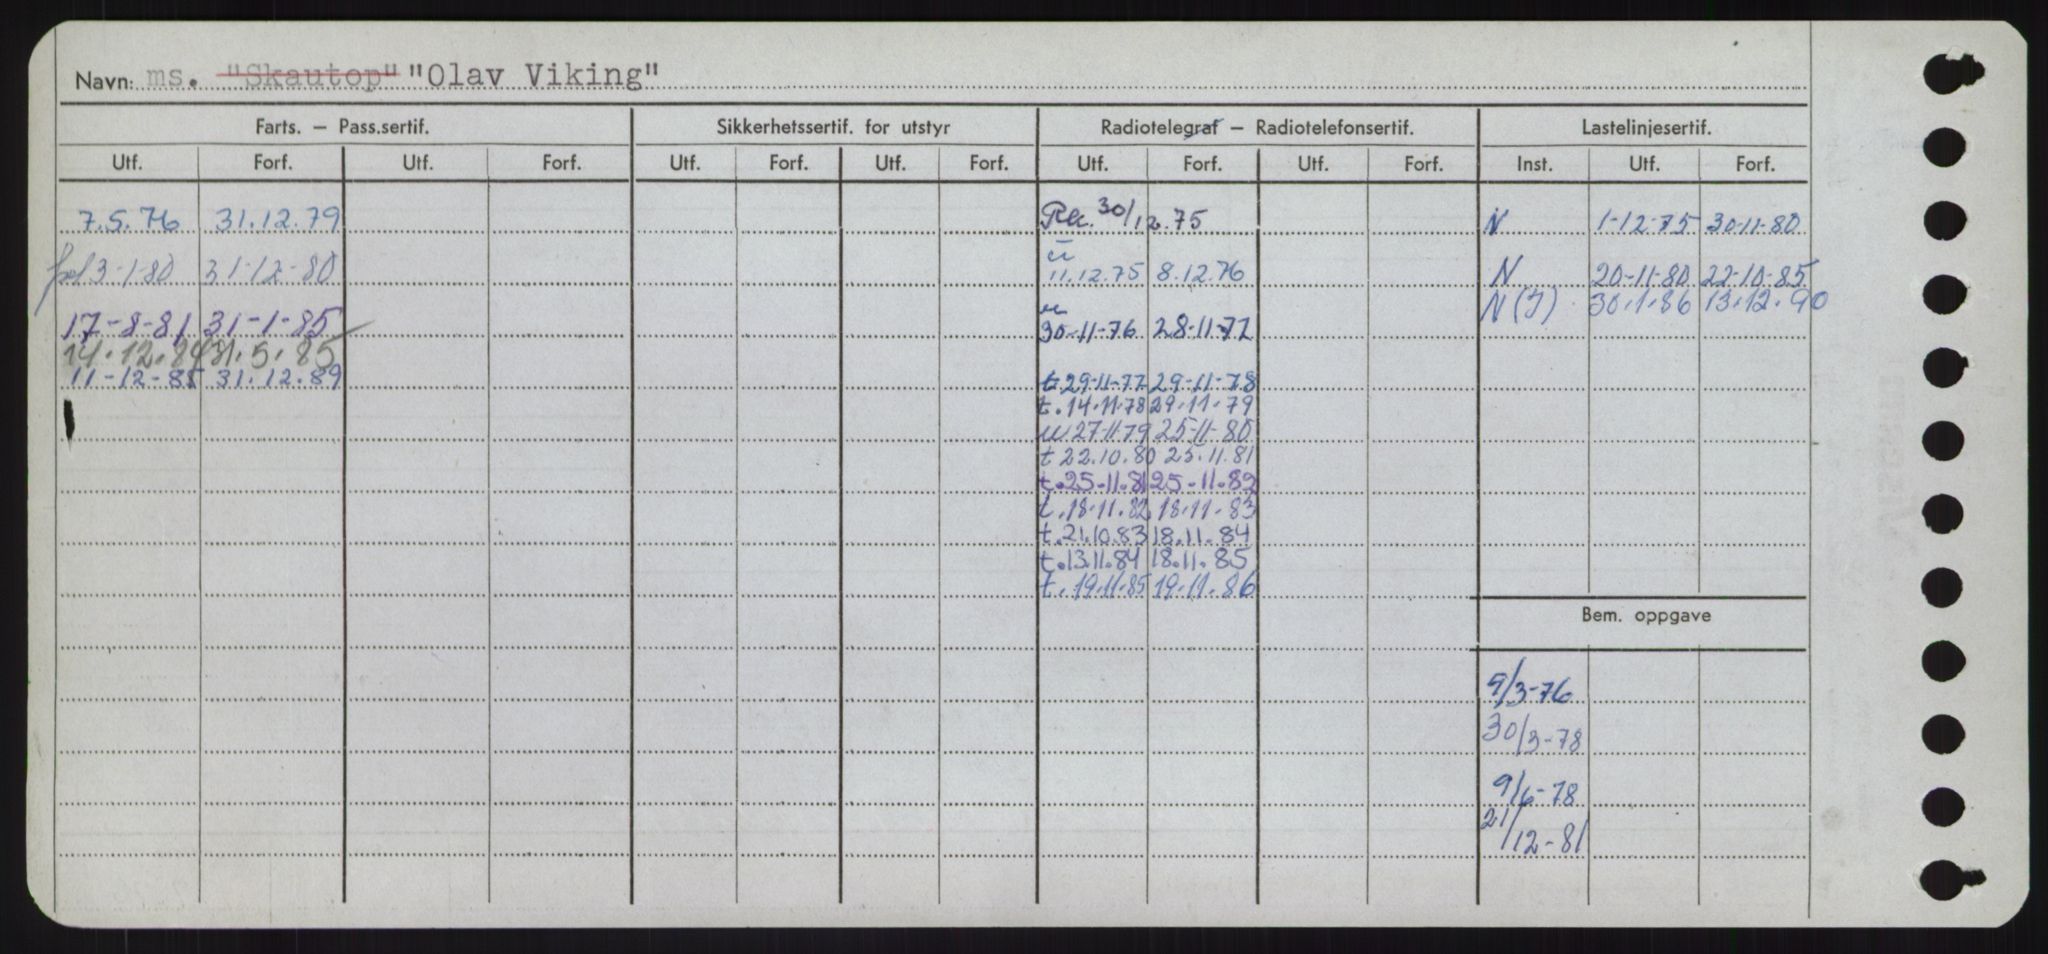 Navn: ms. "Skautop" "Olav Viking"
Farts. — Pass.sertif. Sikkerhetssertif. for utstyr Radiotelegraf — Radiotelefonsertif. Lastelinjesertif.
Utf. Forf. Utf. Forf. Utf. Forf. Utf. Forf. Utf. Forf. Utf. Forf. Inst. Utf. Forf.
7.5.76 31.12.79 30/12.75 N 1-12-75 30-11-80
3-1-80 31-12-80 11.12.75 8.12.76 N 20-11-80 22-10-85
N(I) 30.1.86 13.12.90
17-8-81 31-1-85 30-11-76 28-11-77
14.12.84 31.5.85
11-12-85 31.12.89 t 29-11-77 29-11-78
t. 14.11.78 29.11.79
u 27-11-79 25-11-80
t 22.10.80 25.11.81
t. 25.11.81 25.11.82
t. 18.11.82 18.11.83
t. 21.10.83 18.11.84
t. 13.11.84 18.11.85
t. 19.11.85 19.11.86
Bem. oppgave
9/3-76
30/3-78
9/6-78
21/12-81